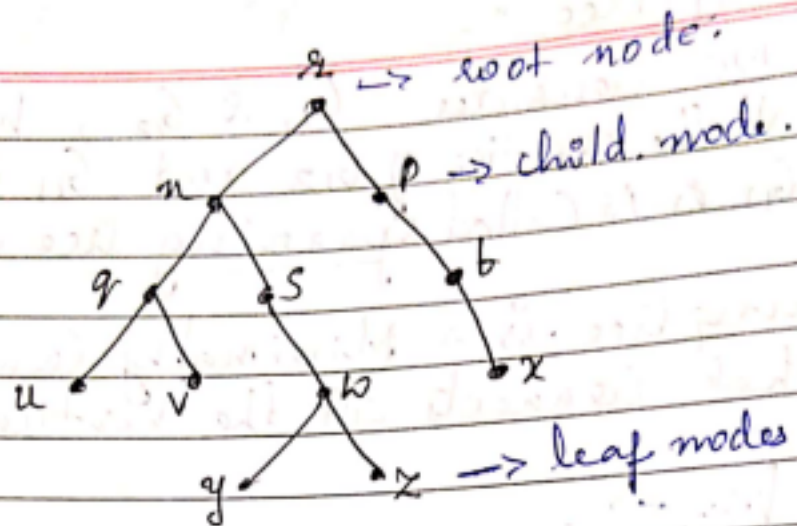 r → root node.
n p → child node.
q s t
u v w x
y z → leaf nodes